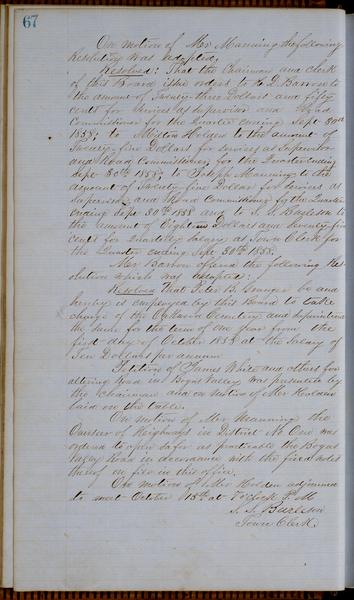 67
On motion of Mr Manning the following
Resolution was adopted,
Resolved: That the Chairman and clerk
of this Board issue orders to H. D. Barrow to
the amount of Twenty-three Dollars and fifty
cents for services as supervisor and Road
Commissioner for the Quarter ending Sept 30th
1858; to Milton Holden to the amount of
Twenty-five Dollars for services as Supervisor
and Road Commissioner, for the Quarter ending
Sept 30th 1858; to Joseph Manning to the
amount of Twenty-five Dollars for services as
Supervisor and Road Commissioner for the Quarter
ending Sept 30th 1858 and to S. S. Burleson to
the amount of Eighteen Dollars and seventy-five
cents for Quarterly salary as Town Clerk for
the Quarter ending Sept 30th 1858.
Mr Barrow offered the following Res-
olution which was adopted:
Resolved That Peter B. Granger be and
hereby is employed by this Board to take
charge of the Cemetery and superintend
the same for the term of one year from the
first day of October 1858 at the Salary of
Ten Dollars per annum
Petition of James White and others for
altering Road in Bogus Valley was presented by
the Chairman and on motion of Mr Holden
laid on the table.
On motion of Mr Manning the
Overseer of Highways in District No One was
ordered to open so far as practicable the Bogus
Valley Road in accordance with the field notes
thereof on file in this office.
On motion of Mr Holden adjourned
to meet October 15th at 7 o'clock P.M
S. S. Burleson
Town Clerk.